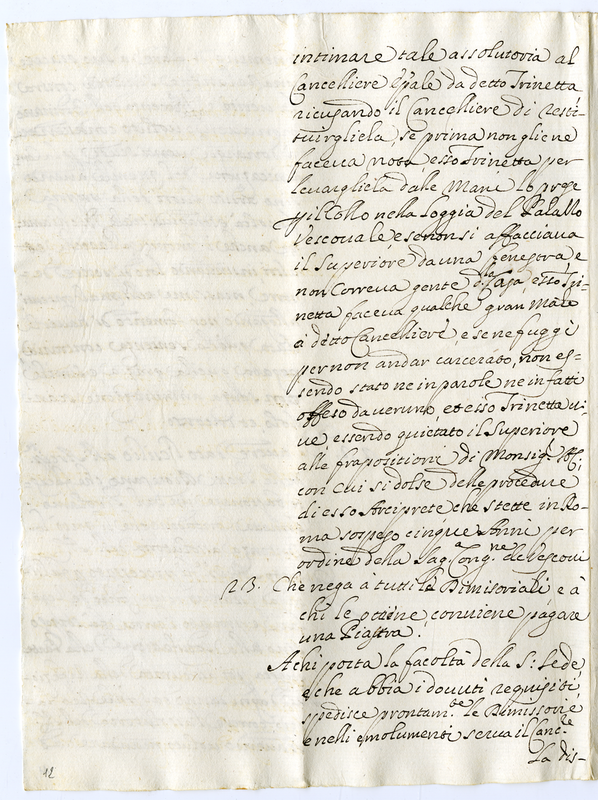 intimare tale assolutoria al
Cancelliere qṗale da detto Trinetta
ricusando il Cancelliere di resti-
tuirgliela, se prima non gliene
faceva nota esso Trinetta per
levargliela dale Mani lo prese
pil Collo nella Loggia del Palazzo
Vescovale e se non si affacciava
il Superiore da una fenestra e
non correva gente d.la Casa esso Tri-
netta faceva qualche gran Male
à detto Cancelliere, e se ne fuggì
per non andar carcerato, non es-
sendo stato ne in parole ne in fatti
offeso da veruno, et esso Trinetta vi-
ve essendo quietato il Superiore
alle frapositioni di Monsig.r
con cui si dolse delle procedure
di esso Arciprete che stette in Ro-
ma sospeso cinque Anni per
ordine della Sag.a Cong.ne de Vescovi
23. Che nega à tutti le Dimisoriali e à
chi le ottiene conviene pagare
una Piastra.
A chi porta la facoltà della S: Sede
e che abbia i dovuti requisiti,
spedisce prontam.te le Dimissorie
e nelli emolumenti serva il Canc.re
La dis-
12